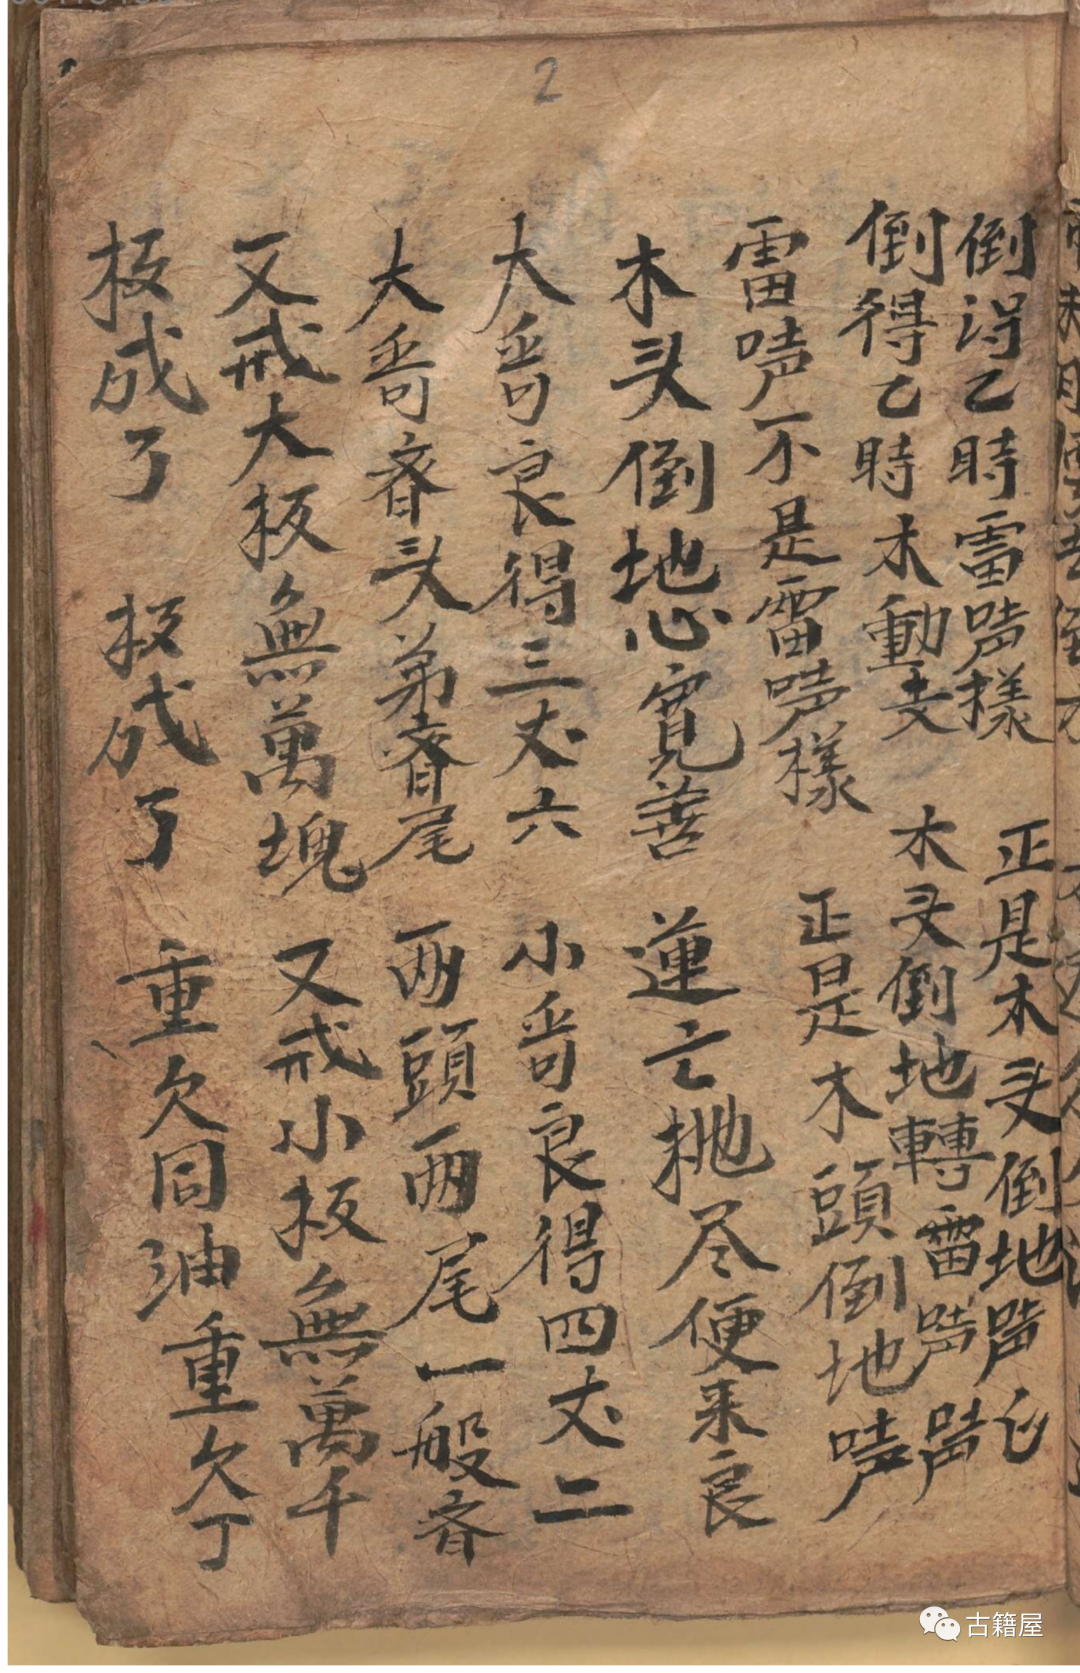 2
倒淂乙時雷唠樣　正是木头倒地唠
倒得乙時木動支　木头倒地轉雷唠唠
雷唠不是雷唠樣　正是木頭倒地唠
木头倒地心寛善　蓮亡抛尽便来良
大哥良得三丈六　小哥良得四丈二
大哥齐头弟齐尾　两頭两尾一般齐
又戒大板無萬塊　又戒小板無萬千
板成了　板成了　重欠同油重欠丁
古籍屋